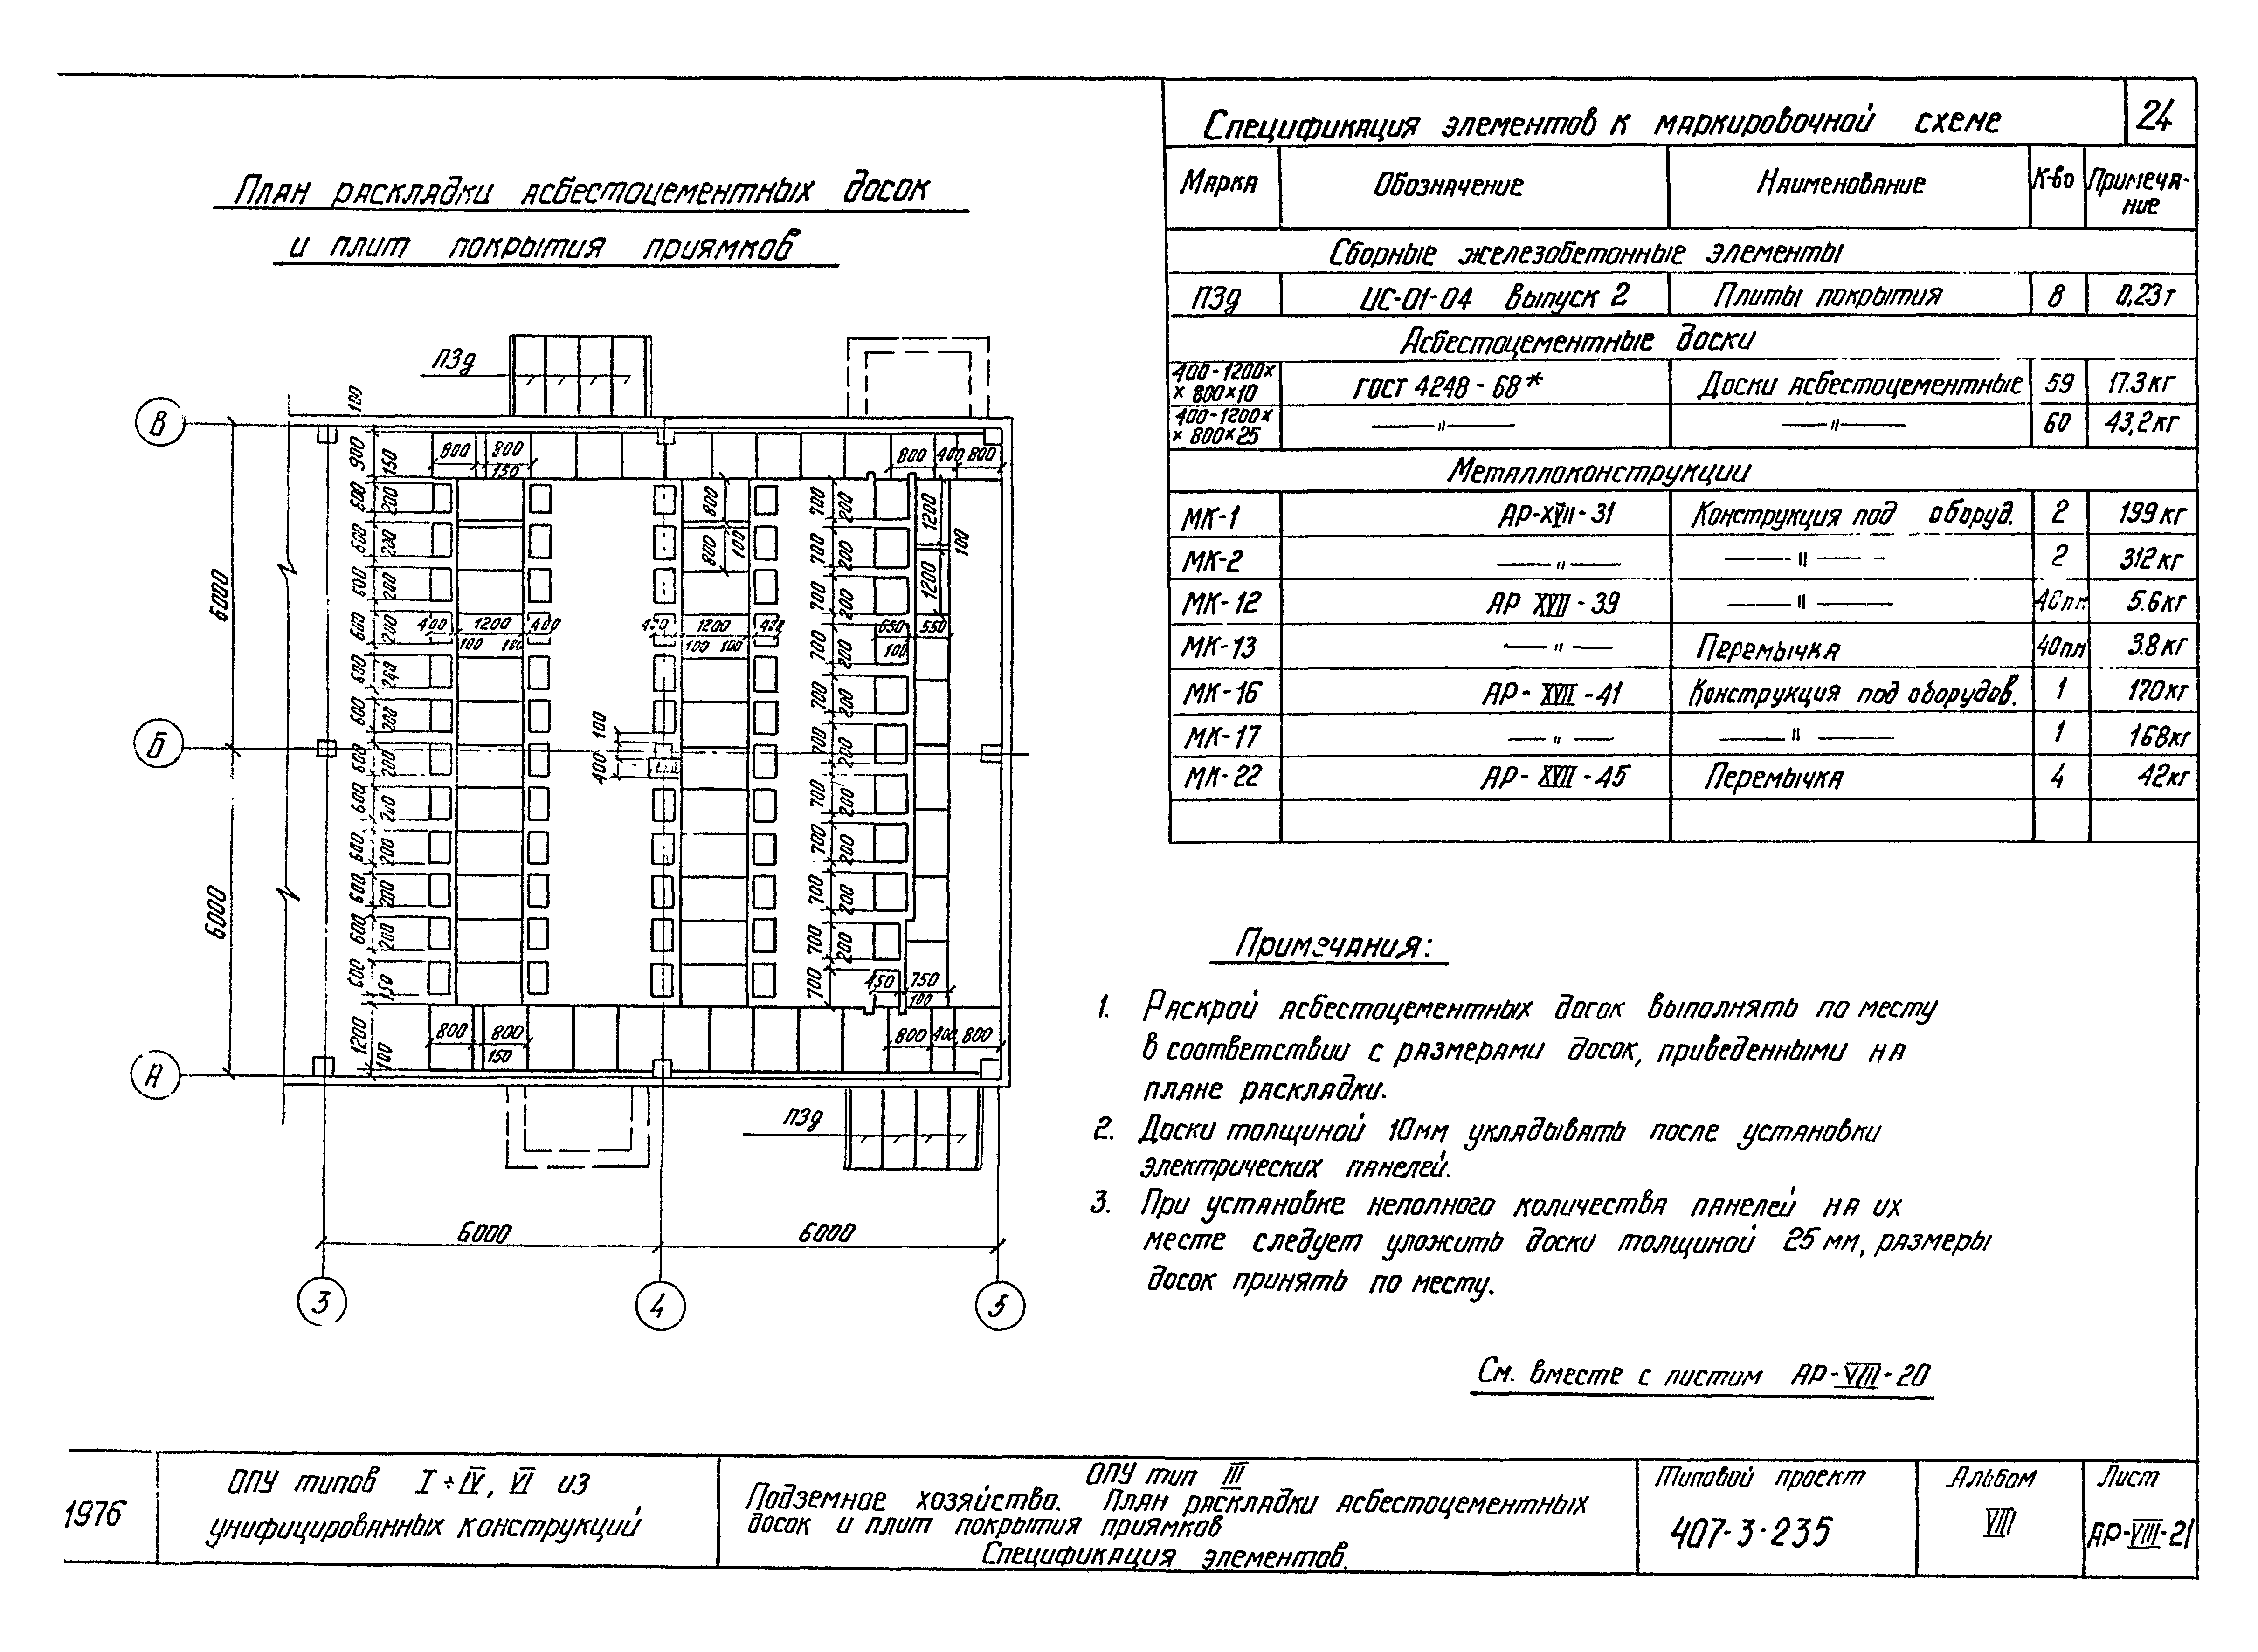 План раскладки асбестоцементных досок
и плит покрытия приямков
Спецификация элементов к маркировочной схеме
24
Марка Обозначение Наименование К-во Примеча-
ние
Сборные железобетонные элементы
П3д ИС-01-04 Выпуск 2 Плиты покрытия 8 0,23т
Асбестоцементные доски
400-1200×
×800×10 ГОСТ 4248-68* Доски асбестоцементные 59 17.3кг
400-1200×
×800×25 —〃— —〃— 60 43,2кг
Металлоконструкции
МК-1 АР-XVII-31 Конструкция под оборуд. 2 199кг
МК-2 —〃— —〃— 2 312кг
МК-12 АР XVII-39 —〃— 40пм 5.6кг
МК-13 —〃— Перемычка 40пм 3.8кг
МК-16 АР-XVII-41 Конструкция под оборудов. 1 170кг
МК-17 —〃— —〃— 1 168кг
МК-22 АР-XVII-45 Перемычка 4 42кг
П3д
В
Б
А
6000
6000
100
900
150
600 200
600 200
600 200
600 200
600
600 200
600 200
600
600 200
600 200
600 200
600 150
1200
100
800 800
150
800 400 800
400 1200 400
100 100
1200
100 100
800
800 100
100
400
700 200
700 200
700 200
700 200
700 200
700 200
700 200
700 200
700 200
700 200
700
650 550
100
1200
100
1200
450 750
100
800 800
150
800 400 800
П3д
6000 6000
3 4 5
Примечания:
1. Раскрой асбестоцементных досок выполнять по месту
в соответствии с размерами досок, приведенными на
плане раскладки.
2. Доски толщиной 10мм укладывать после установки
электрических панелей.
3. При установке неполного количества панелей на их
месте следует уложить доски толщиной 25 мм, размеры
досок принять по месту.
См. вместе с листом АР-VIII-20
1976
ОПУ типов I÷IV, VI из
унифицированных конструкций
ОПУ тип III
Подземное хозяйство. План раскладки асбестоцементных
досок и плит покрытия приямков
Спецификация элементов.
Типовой проект
407-3-235
Альбом
VIII
Лист
АР-VIII-21